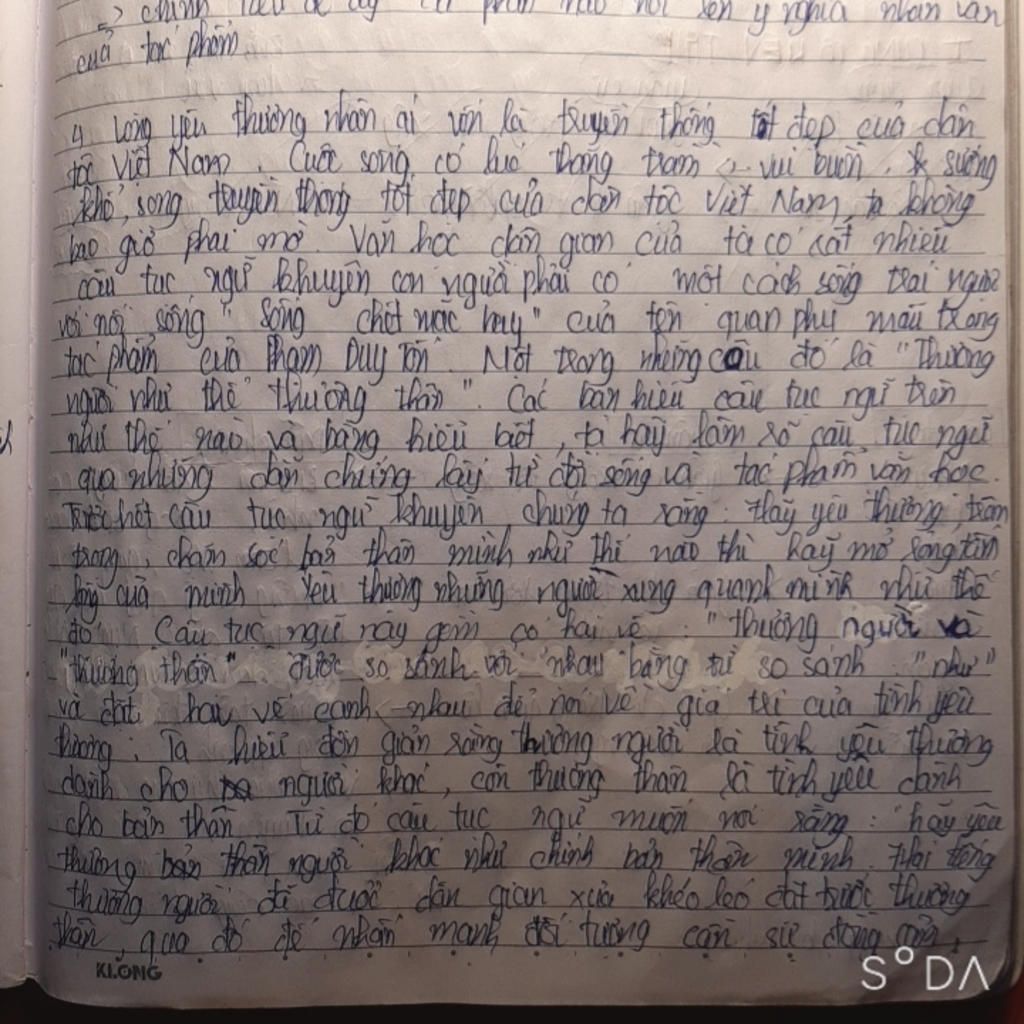 => chính
của tác phẩm
4 Lòng yêu thương nhân ái vốn là truyền thống tốt đẹp của dân
tộc Việt Nam. Cuộc sống có lúc thăng trầm, vui buồn, sướng
khổ, song truyền thống tốt đẹp của dân tộc Việt Nam ta không
bao giờ phai mờ. Văn học dân gian của ta có rất nhiều
câu tục ngữ khuyên con người phải có một cách sống trái ngược
với nói sống "sống chết mặc bay" của tên quan phụ mẫu trong
tác phẩm của Phạm Duy Tốn. Một trong những câu đó là "Thương
người như thể thương thân". Các bạn hiểu câu tục ngữ trên
như thế nào và bằng hiểu biết, ta hãy làm rõ câu tục ngữ
qua những dẫn chứng lấy từ đời sống và tác phẩm văn học.
Trước hết câu tục ngữ khuyên chúng ta rằng: Hãy yêu thương, trân
trọng, chăm sóc bản thân mình như thế nào thì hãy mở rộng tấm
lòng của mình yêu thương những người xung quanh mình như thế
đó. Câu tục ngữ này gồm có hai vế: "thương người và
"thương thân" được so sánh với nhau bằng từ so sánh "như"
và đặt hai vế cạnh nhau để nói về giá trị của tình yêu
thương. Ta hiểu đơn giản rằng thương người là tình yêu thương
dành cho người khác, còn thương thân là tình yêu dành
cho bản thân. Từ đó câu tục ngữ muốn nói rằng: hãy yêu
thương bản thân người khác như chính bản thân mình. Hai tiếng
thương người đã được dân gian xưa khéo léo đặt trước thương
thân, qua đó để nhấn mạnh đối tượng cần sự đồng cảm,
KLONG
SODA